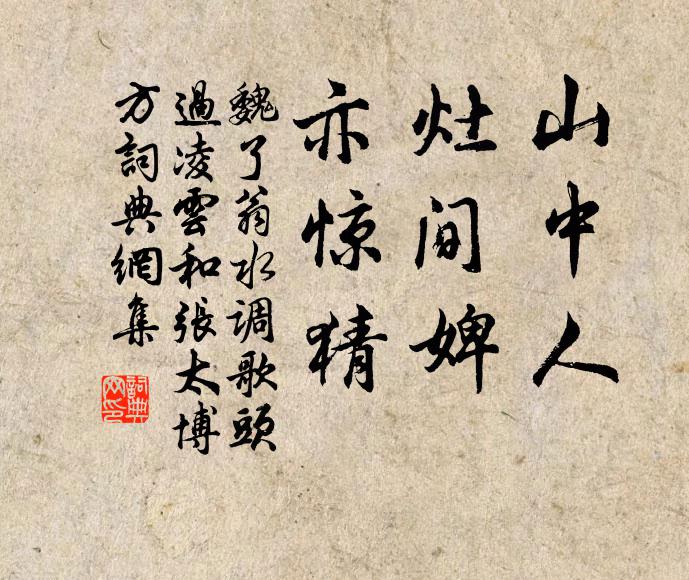 山中人
灶间婢
亦惊猜
魏了翁水调歌頭
過凌雲和張太博
方詞典網集
詞典
网印